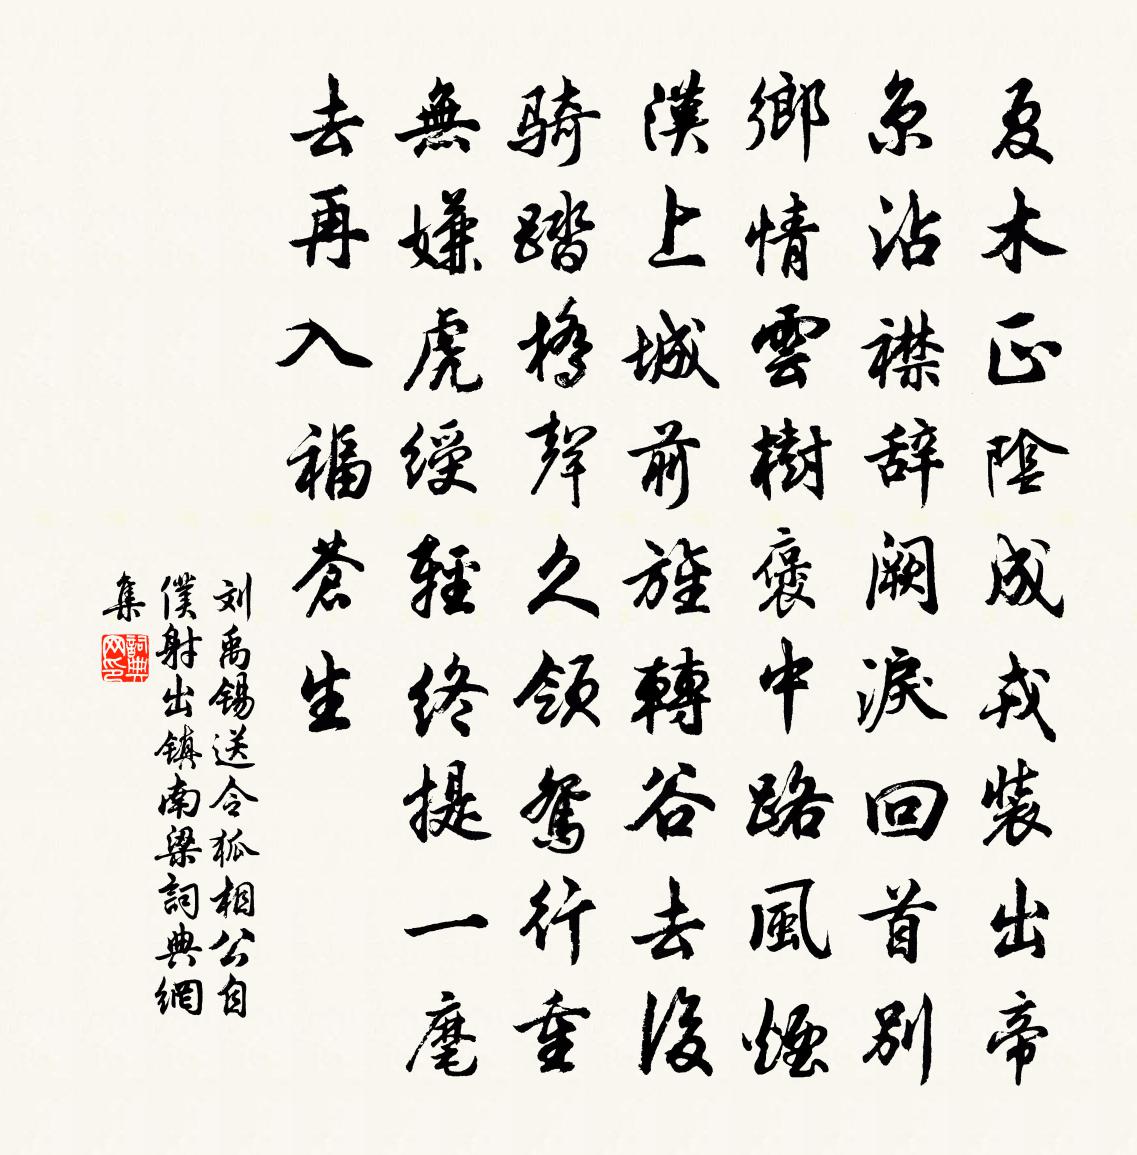 夏木正陰成戎裝出帝
京沾襟辞闕淚回首别
鄉情雲樹褒中路風煙
漢上城前旌轉谷去後
騎踏橋聲久領鴛行重
無嫌虎綬輕終提一麾
去再入福蒼生
刘禹锡送令狐相公自
僕射出镇南梁詞典網
集
詞典
网印